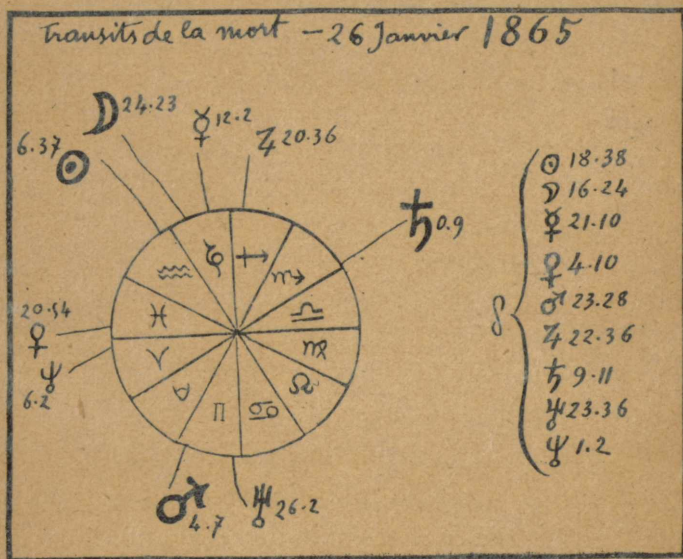 Transits de la mort — 26 Janvier 1865
☽ 24.23
☿ 12.2
♃ 20.36
6.37 ☉
♄ 0.9
♑ ♐
♒ ♏
♓ ♎
♈ ♍
♉ ♌
♊ ♋
20.54
♀
♆
6.2
♂ 4.7
♅ 26.2
δ
☉ 18.38
☽ 16.24
☿ 21.10
♀ 4.10
♂ 23.28
♃ 22.36
♄ 9.11
♅ 23.36
♆ 1.2